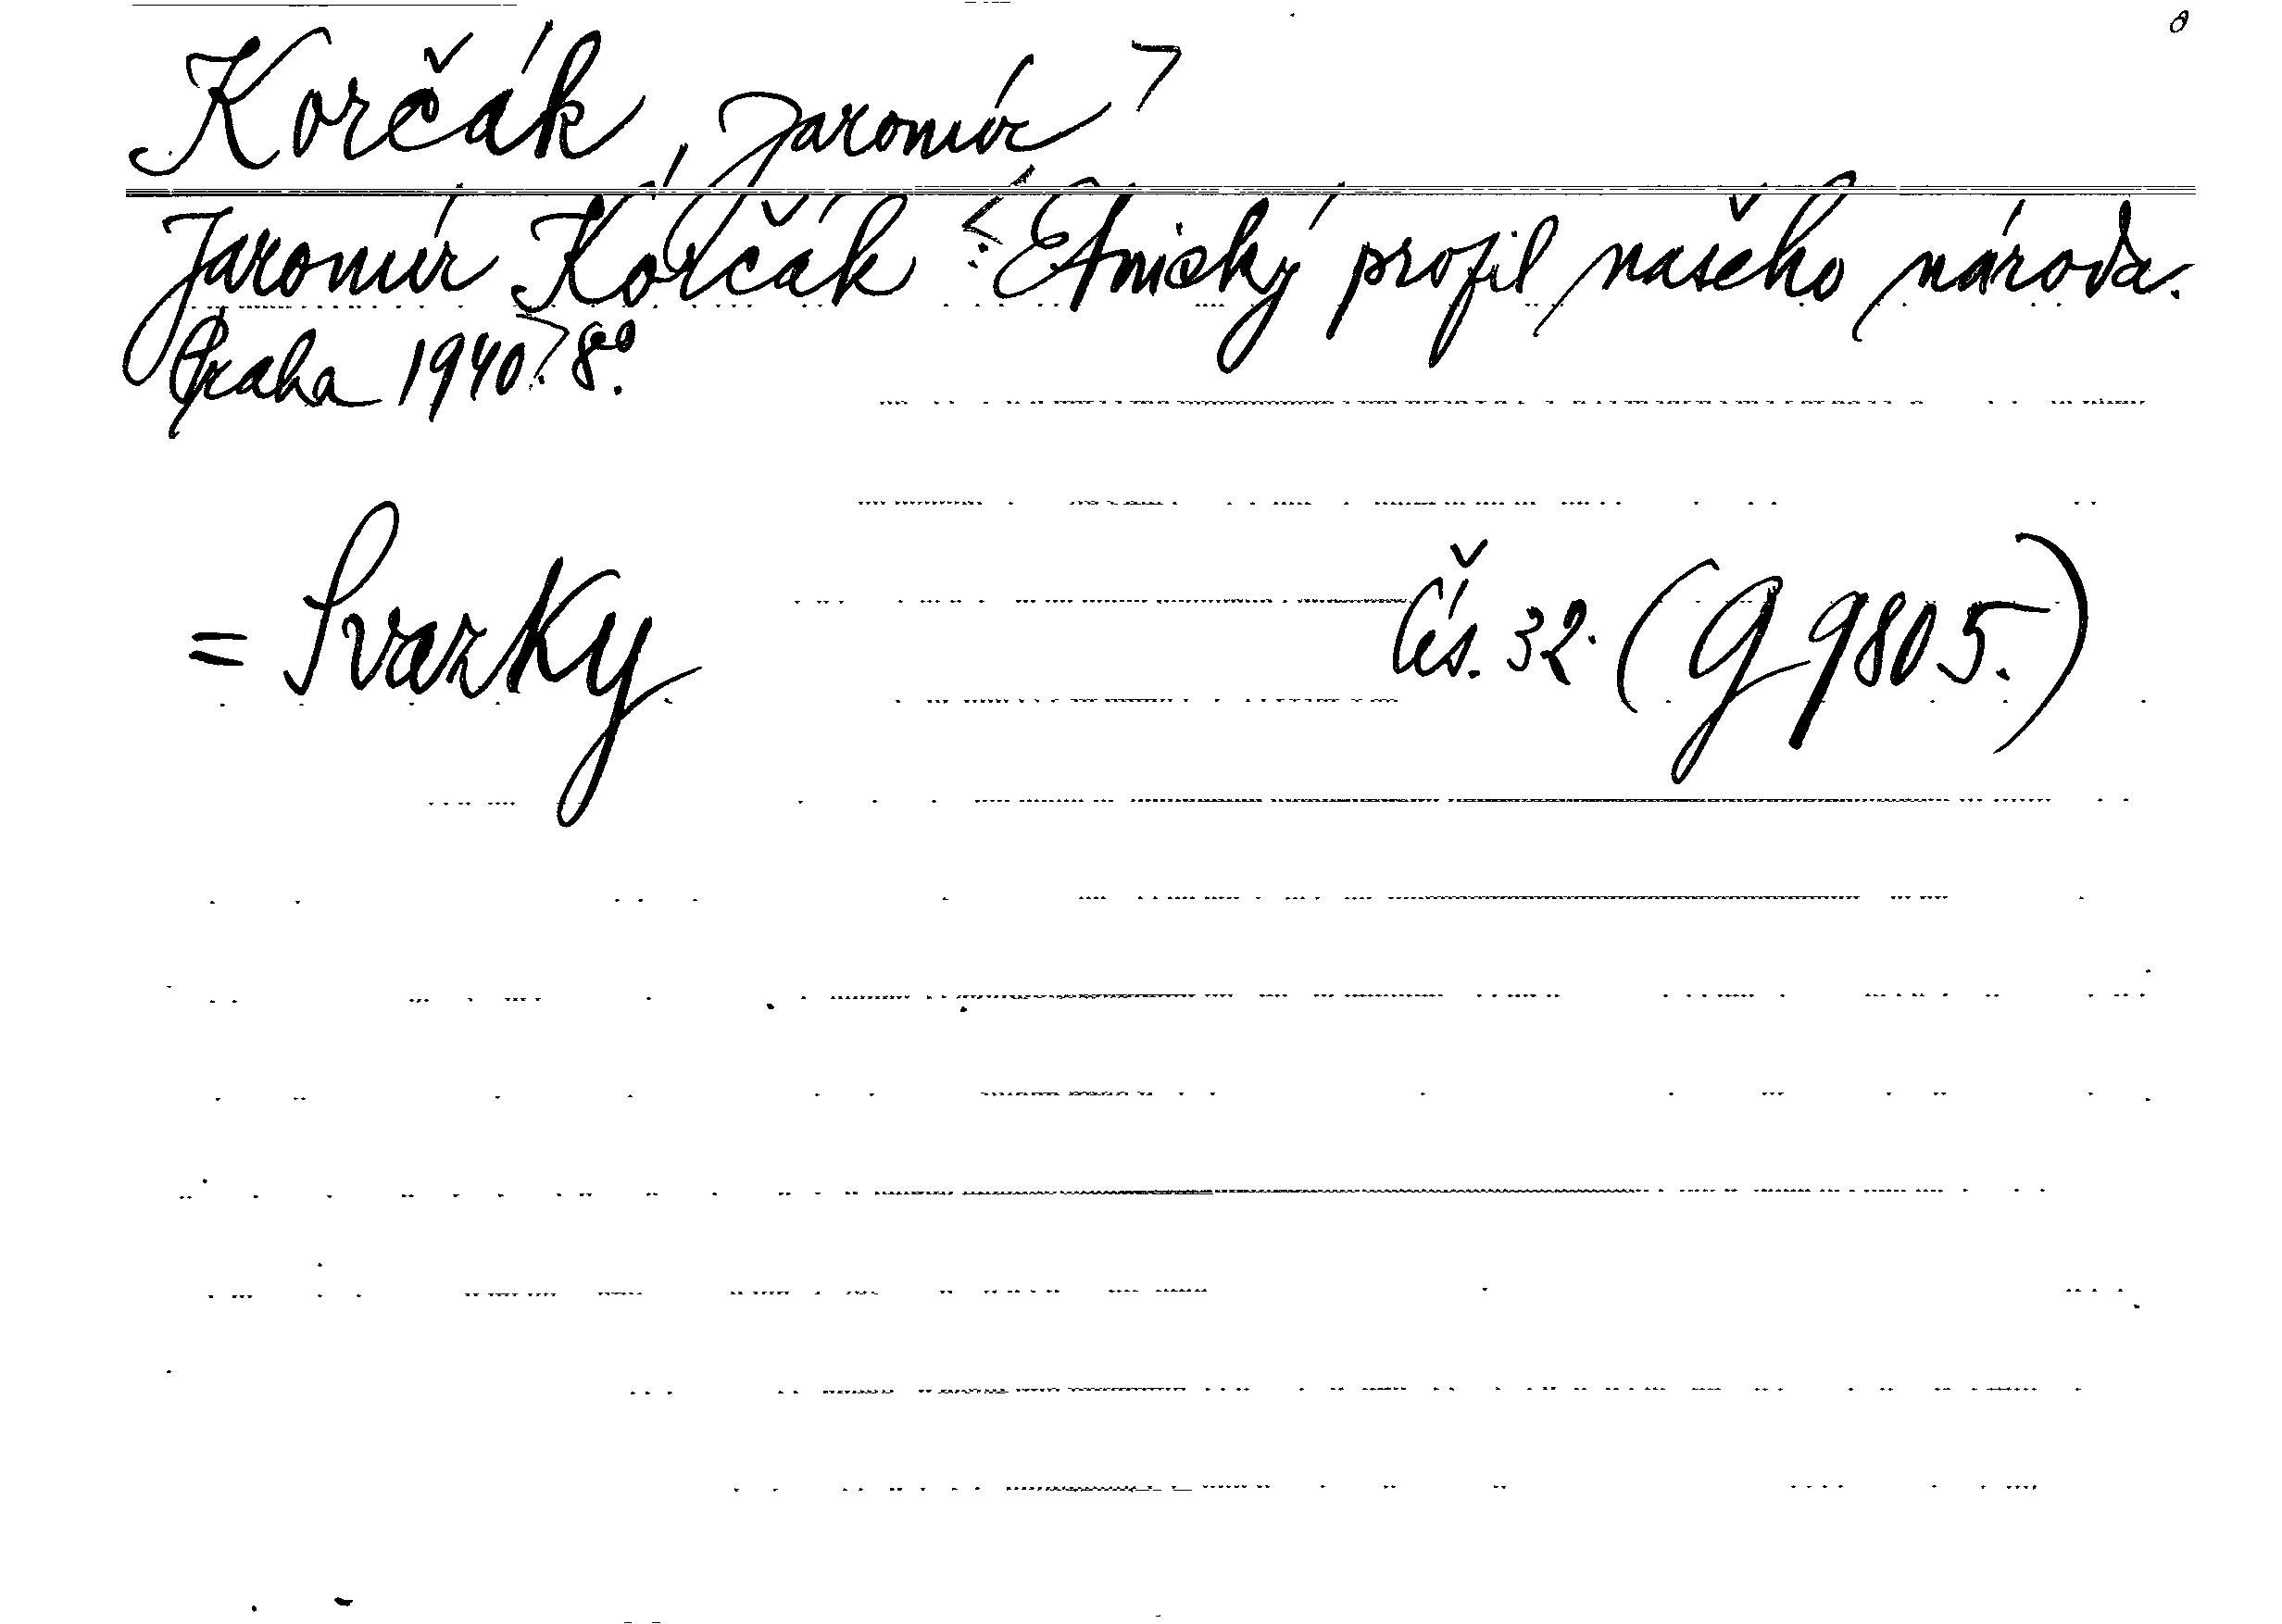 Korčák, Jaromír
Jaromír Korčák: Etnický profil našeho národa.
Praha 1940. 8°.
= Svazky Čís. 32. (G 9805.)